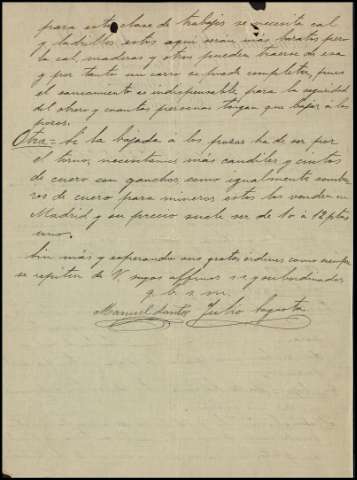 para esta clase de trabajos se necesita cal
y ladrillos estos aquí seran mas baratos pero
la cal, maderas y otros pueden traerse de esa
y por tanto un carro se puede completar, pues
el saneamiento es indispensable para la seguridad
del obrero y cuantas personas tengan que bajar á los
pozos.
Otra = Si la bajada á los pozos ha de ser por
el torno, necesitamos más candiles y cintos
de cuero con ganchos como igualmente sombre
ros de cuero para mineros estos los venden en
Madrid y su precio suele ser de 10 á 12 ptas
uno.
Sin más y esperando sus gratas órdenes como siempre
se repiten de V. suyos affmos s. s. y subordinados
q. b. s. m.
Manuel Santos Julio Sagasta